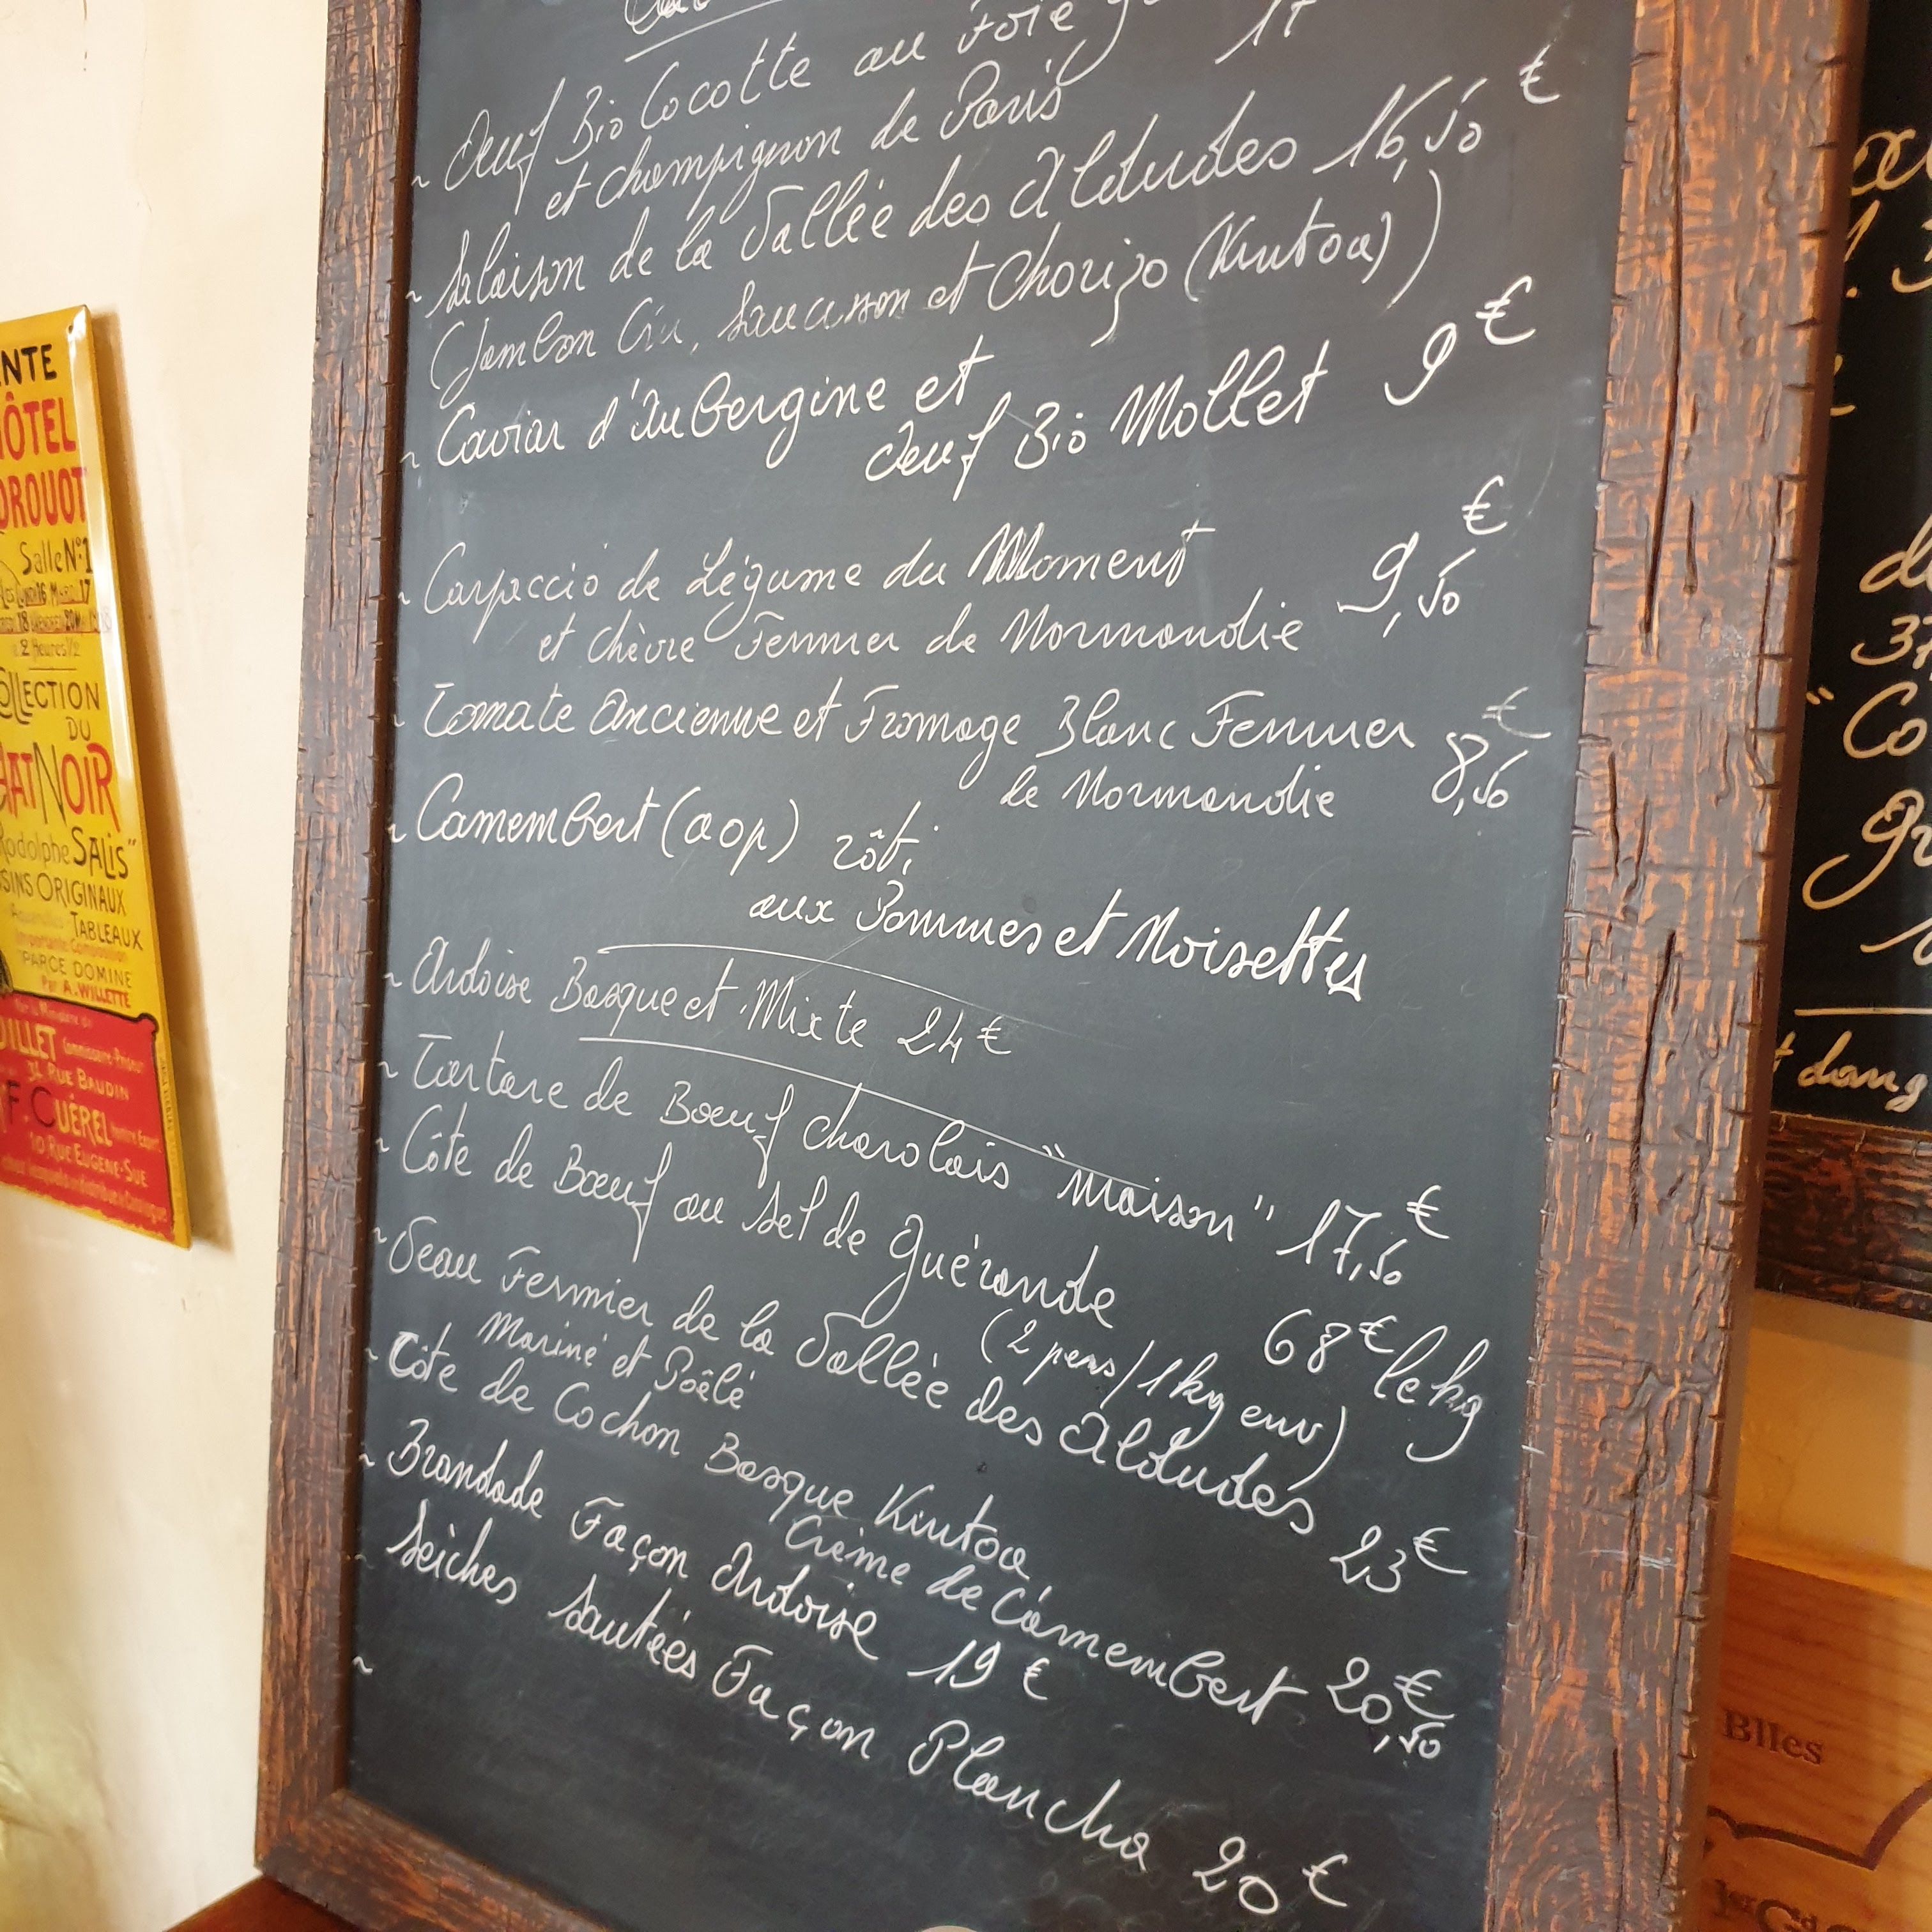 ~ Oeuf Bio Cocotte au Foie
et champignon de Paris
~ Salaison de la Vallée des Aldudes 16,50 €
(Jambon Cru, Saucisson et Chorizo (Kintoa))
~ Caviar d'Aubergine et
Oeuf Bio Mollet 9 €
~ Carpaccio de Légume du Moment
et chèvre Fermier de Normandie 9,50 €
~ Tomate Ancienne et Fromage Blanc Fermier
de Normandie 8,50 €
~ Camembert (aop) rôti
aux Pommes et Noisettes
~ Ardoise Basque et Mixte 24 €
~ Tartare de Boeuf charolais "maison" 17,50 €
~ Côte de Boeuf au sel de Guérande
(2 pers/1kg env) 68 € le kg
~ Veau Fermier de la Vallée des Aldudes 23 €
Mariné et Poêlé
~ Côte de Cochon Basque Kintoa
Crème de Camembert 20,50 €
~ Brandade Façon Ardoise 19 €
~ Seiches Sautées Façon Plancha 20 €
~
NTE
HÔTEL
DROUOT
Salle N°1
2 Heures 1/2
COLLECTION
DU
CHAT NOIR
Rodolphe SALIS"
DESSINS ORIGINAUX
TABLEAUX
"PARCE DOMINE"
Par A. WILLETTE
31 RUE BAUDIN
F. CUÉREL
10 RUE EUGENE-SUE
37
"Co
Blles
1er G